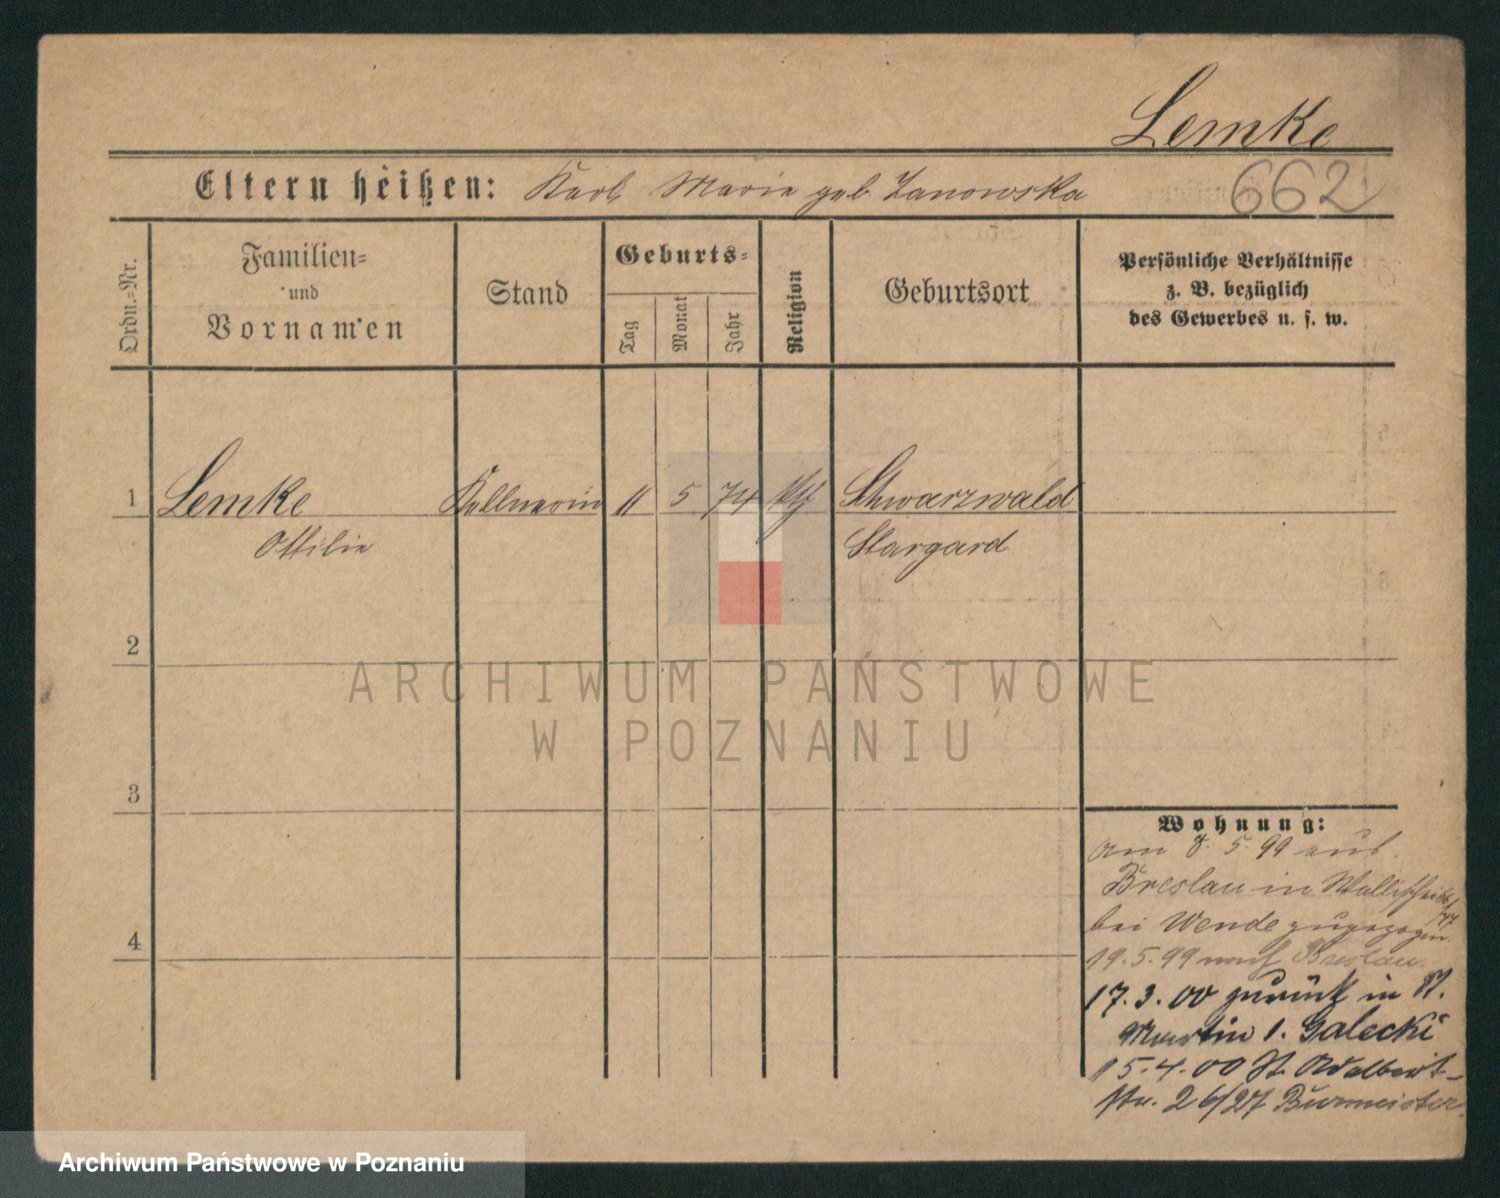 Lemke
Eltern heißen: Karl, Marie geb. Zanowska
662
Ordn.=Nr.
Familien=
und
Vornamen
Stand
Geburts=
Tag
Monat
Jahr
Religion
Geburtsort
Persönliche Verhältnisse
z. B. bezüglich
des Gewerbes u. s. w.
1 Lemke Kellnerin 11 5 74 Schwarzwald
Ottilie Stargard
2
3
4
Wohnung:
Am 8. 5. 99 aus
Breslau in Wallischei
bei Wende zugezogen.
19.5.99 nach Breslau.
17.3.00 zurück in St.
Martin 1. Galecki
15.4.00 St. Adalbert-
str. 26/27 Burmeister
ARCHIWUM PAŃSTWOWE
W POZNANIU
Archiwum Państwowe w Poznaniu